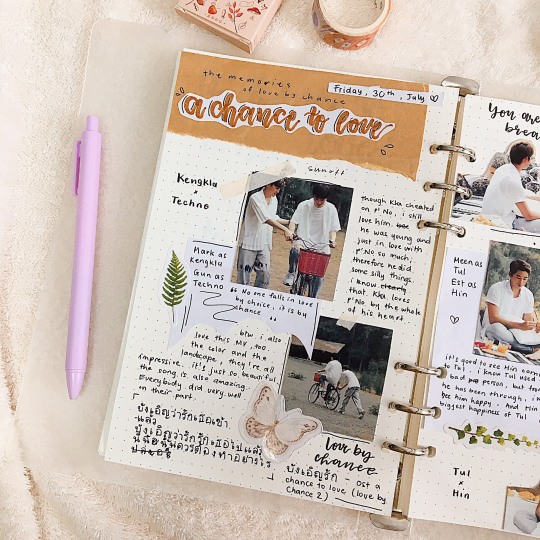 the memories
of love by chance
Friday, 30th, July ♡
a chance to love
sunoft
Kengkla
×
Techno
Mark as
Kengkla
Gun as
Techno
" No one falls in love
by choice, it is by
chance "
Though Kla cheated
on P'No, i still
love him.
he was young and
just in love with
P'No so much,
therefore he did
some silly things.
i know clearly
that Kla loves
P'No by the whole
of his heart
btw i also
love this MV, too
the color and the
landscape, they're all
impressive. it's just so beautiful
the song is also amazing.
Everybody did very well
in their part.
บังเอิญว่ารักเธอเข้า
แล้ว
บังเอิญว่ารักรักเธอไปแล้ว
love by
chance
บังเอิญรัก - ost a
chance to love (love by
Chance 2)
You are
brea
Mean as
Tul
Est as
Hin
♡
it's good to see Hin
to Tul. i know Tul used
bad person, but
he has been through, i
see him happy. And Hin
biggest happiness of Tul
Tul
×
Hin